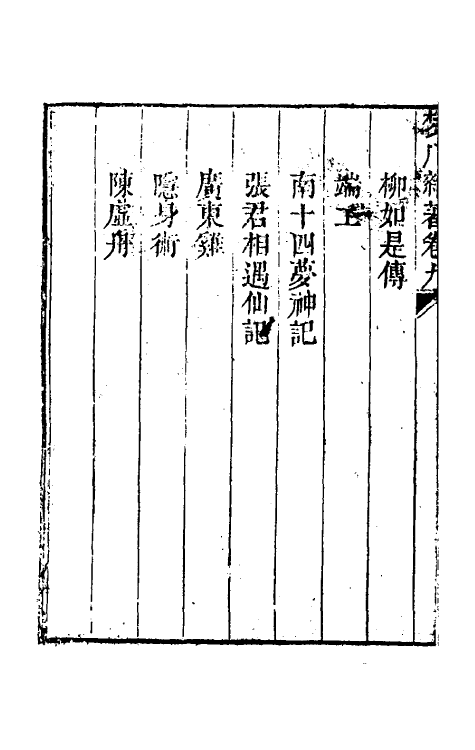 柳如是傳
端工
南十四夢神記
張君相遇仙記
廣東雞
隱身術
陳虛舟
雜著卷九